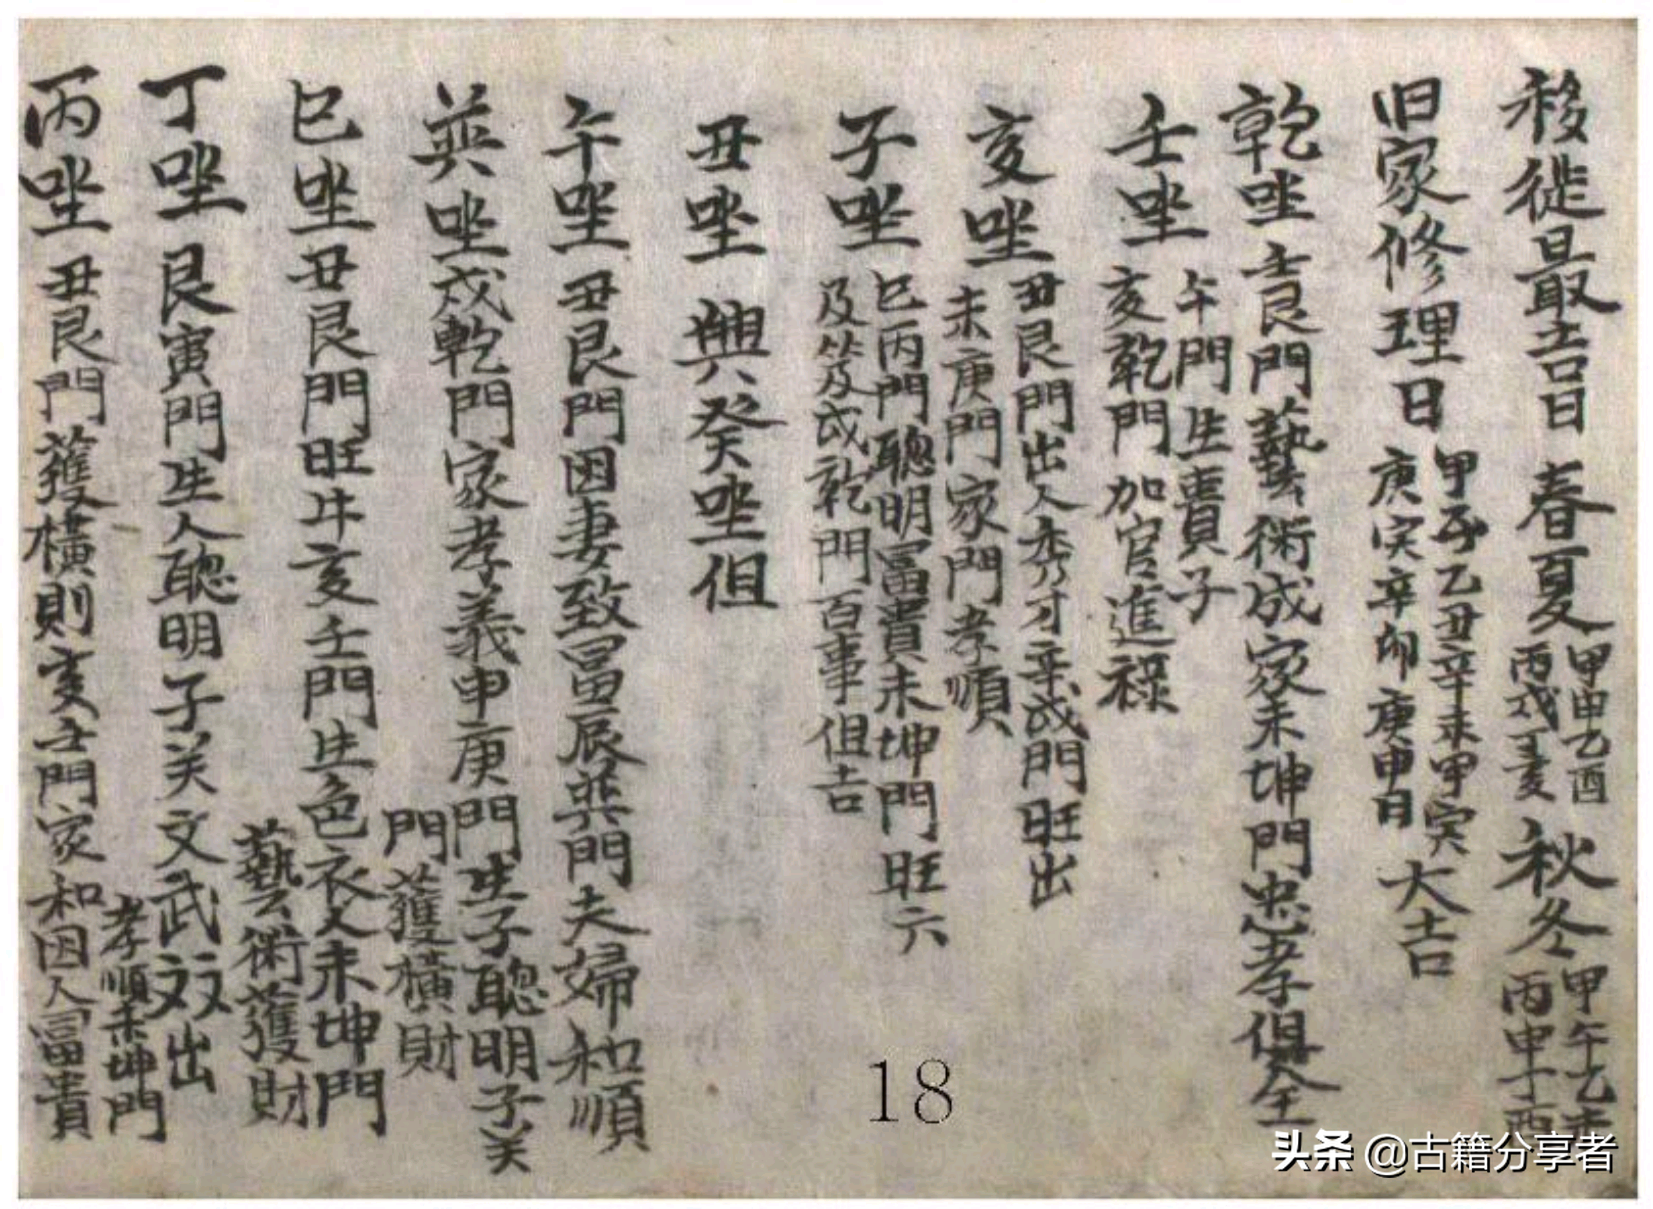 移徙最吉日 春夏 甲申乙酉 丙戌丁亥 秋冬 甲午乙未 丙申丁酉
旧家修理日 甲子乙丑辛未甲寅 庚寅辛卯庚申日 大吉
乾坐 壬艮門藝術成家未坤門忠孝俱全
壬坐 午門生貴子 亥乾門加官進祿
亥坐 丑艮門出人秀才辛戌門旺出 未庚門家門孝順
子坐 巳丙門聰明冨貴未坤門旺六 及笅及戌乾門百事但吉
丑坐 與癸坐但
午坐 丑艮門因妻致冨辰巽門夫婦和順
巽坐 戌乾門家孝義申庚門生子聰明子关 門獲橫財
巳坐 丑艮門旺牛亥壬門生色衣人未坤門 藝術獲財
丁坐 艮寅門生人聰明子关文武双出
丙坐 丑艮門獲橫則亥壬門家和因人冨貴 孝順未坤門
18
头条 @古籍分享者